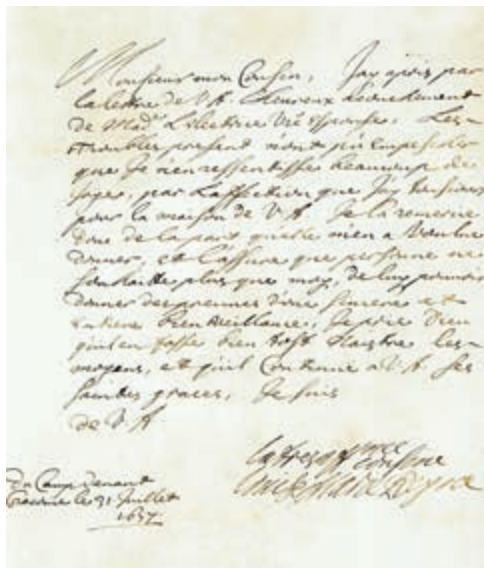 Monsieur mon Cousin, Jay apris par
la lettre de V. A. l'heureux accouchement
de Mad.e L'Electrice Vre Espouse. Les
troubles present n'ont pû empescher
que Je n'en ressentisse beaucoup de
Joye, par l'affection que Jay tousiours
pour la maison de V. A. Je la remercie
donc de la part qu'elle m'en a voulu
donner, et l'assure que personne ne
souhaitte plus que moy, de luy pouvoir
donner des preuves d'une sincere et
entiere bienveillance, Je prie Dieu
qu'il en fasse bien tost naistre les
moyens, et qu'il continue a V. A. ses
saintes graces, Je suis
de V. A
La tres cousine
Marie Reyne
Du Camp devant
Cracovie le 31 Juillet
1657